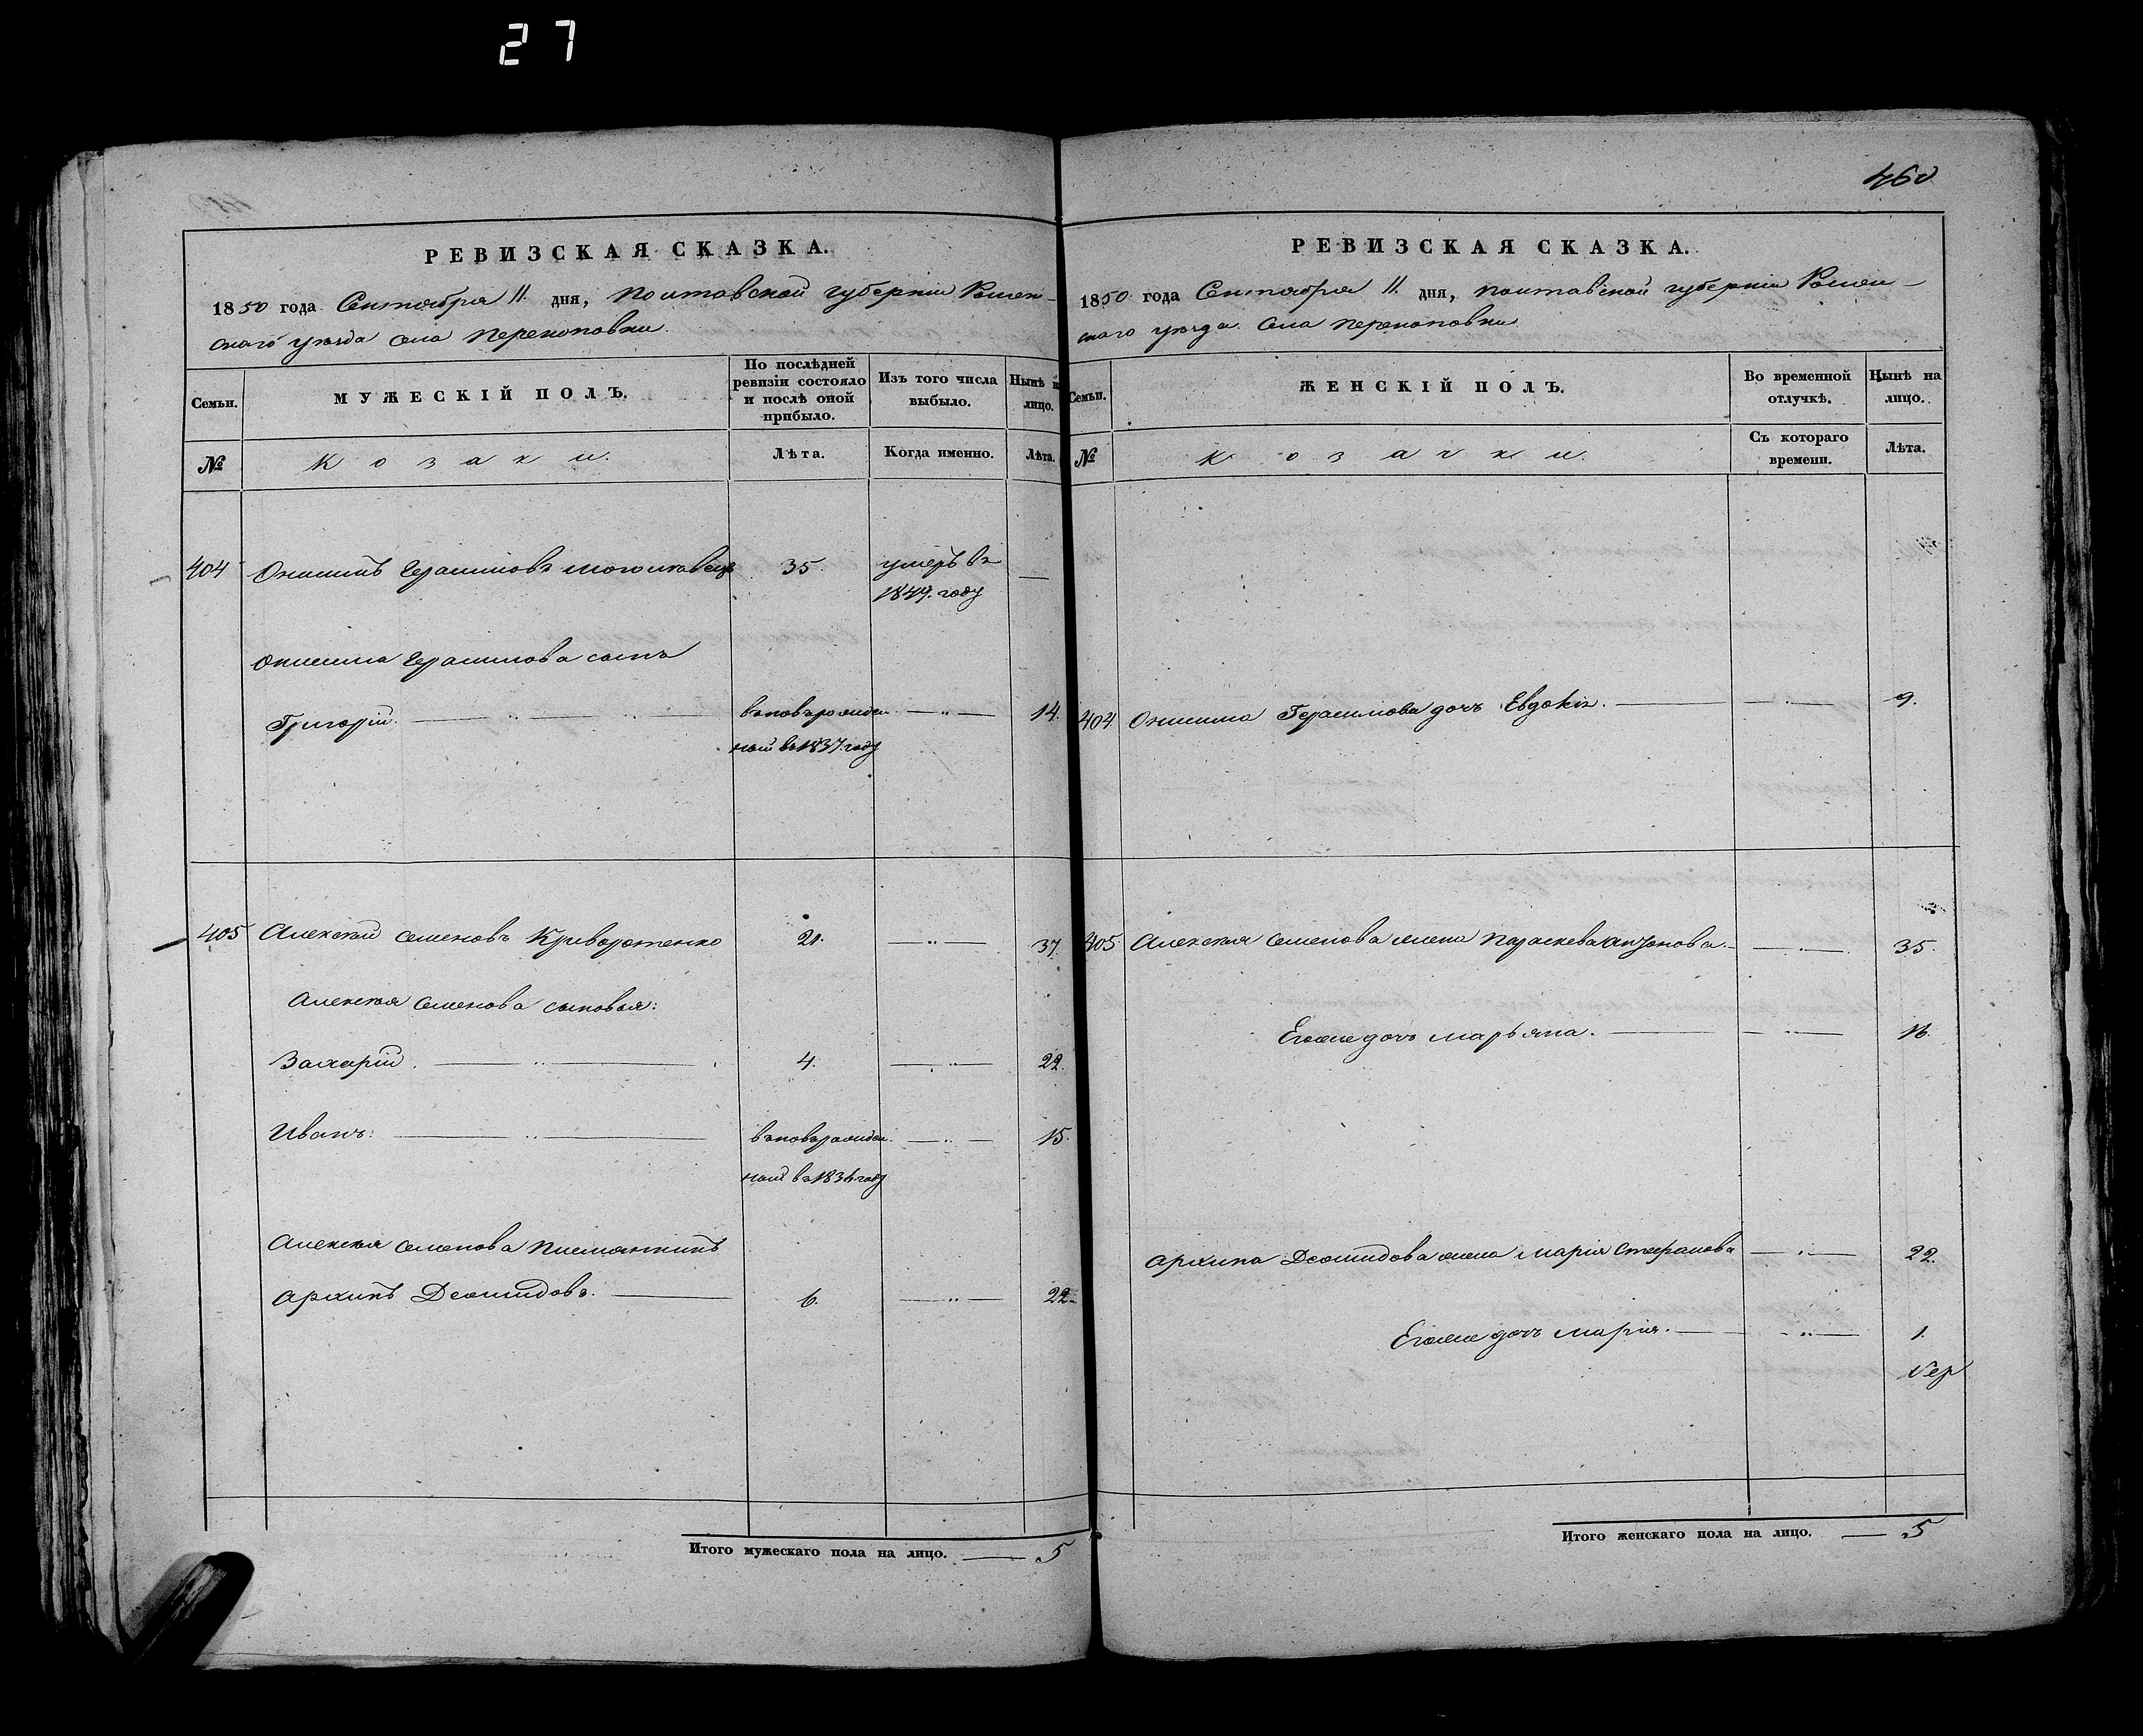 27
460
РЕВИЗСКАЯ СКАЗКА.
1850 года Сентября 11. дня, Полтавской губерніи Ромен-
скаго уѣзда села Перекоповки.
Семьи.
МУЖЕСКІЙ ПОЛЪ.
По послѣдней ревизіи состояло и послѣ оной прибыло.
Изъ того числа выбыло.
Нынѣ на лицо.
№
Козаки.
Лѣта.
Когда именно.
Лѣта.
404 Онисимъ Герасимовъ 35. умеръ въ —
1849. году
Онисима Герасимова сынъ
Григорій. — вновьрожден — 14.
ный въ 1837. году
405 Алексѣй Семеновъ Криворотенко 21. — 37.
Алексѣя Семенова сыновья:
Захарій. — 4. — 22.
Иванъ: — вновьрожден. — 15.
ный въ 1836 году
Алексѣя Семенова племянникъ
Архипъ Деомидовъ. — 6. — 22.
Итого мужескаго пола на лицо. — 5
РЕВИЗСКАЯ СКАЗКА.
1850 года Сентября 11. дня, Полтавской губерніи Ромен-
скаго уѣзда села Перекоповки
Семьи.
ЖЕНСКІЙ ПОЛЪ.
Во временной отлучкѣ.
Нынѣ на лицо.
№
Козачки.
Съ котораго времени.
Лѣта.
404 Онисима Герасимова дочь Евдокія. — 9.
405 Алексѣя Семенова жена Параскева — 35.
Егоже дочь Марьяна. — 16.
Архипа Деомидова жена Марія Стефанова — 22.
Егоже дочь Марія. — 1.
Итого женскаго пола на лицо. — 5